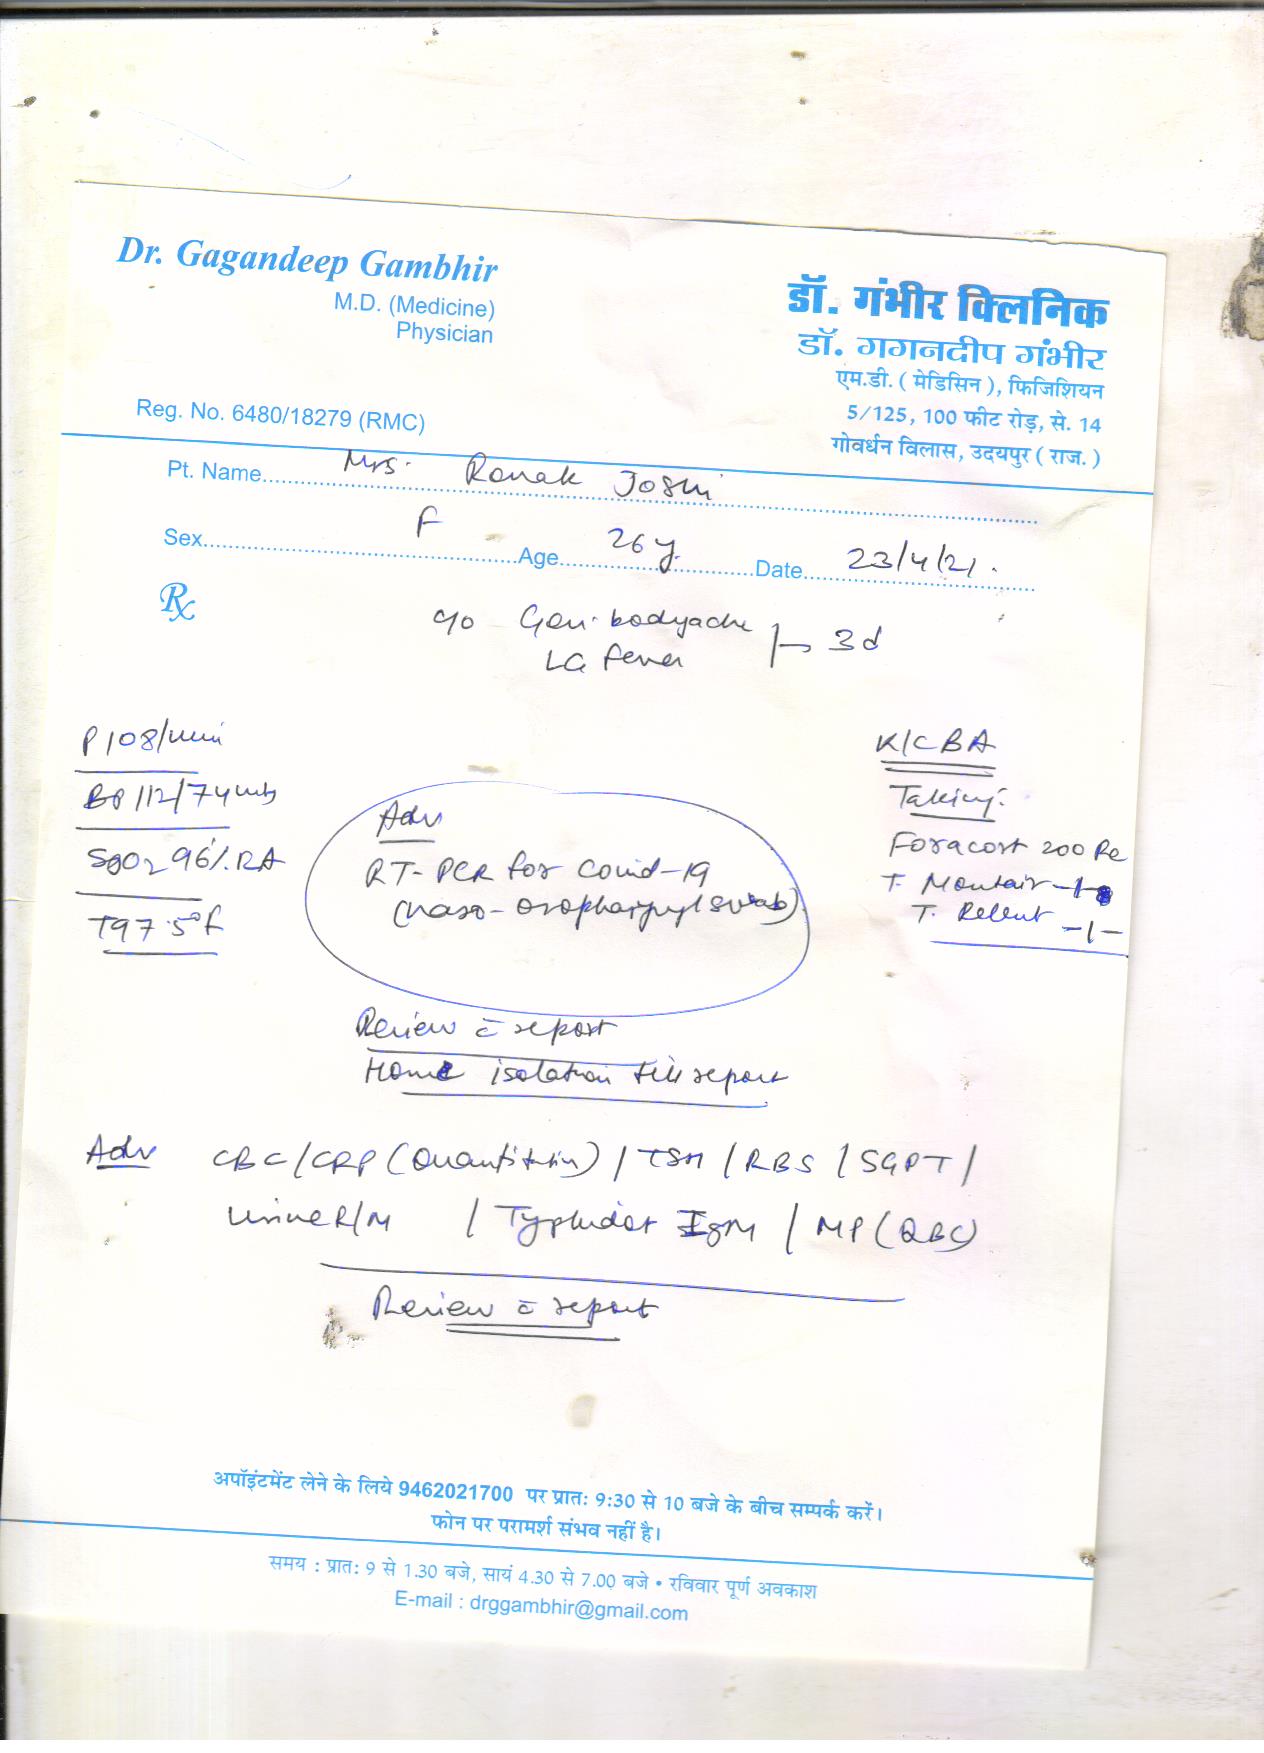 Dr. Gagandeep Gambhir
M.D. (Medicine)
Physician
Reg. No. 6480/18279 (RMC)
डॉ. गंभीर क्लिनिक
डॉ. गगनदीप गंभीर
एम.डी. ( मेडिसिन ), फिजिशियन
5/125, 100 फीट रोड़, से. 14
गोवर्धन विलास, उदयपुर ( राज. )
Pt. Name Mrs. Ronak Joshi
Sex F Age 26y Date 23/4/21.
Rx
c/o Gen. bodyache
LG fever
3d
P 108/min
BP 112/74
SpO2 96% RA
T 97.5°F
K/C BA
Taking:
Foracort 200
T. Montair -1-
T. -1-
Adv
RT-PCR for Covid-19
(Naso-oropharyngl swab).
Review c̄ report
Home isolation till report
Adv CBC/CRP (Quantitative) / TSH / RBS / SGPT /
Urine R/M / Typhidot IgM / MP (QBC)
Review c̄ report
अपॉइंटमेंट लेने के लिये 9462021700 पर प्रातः 9:30 से 10 बजे के बीच सम्पर्क करें।
फोन पर परामर्श संभव नहीं है।
समय : प्रातः 9 से 1.30 बजे, सायं 4.30 से 7.00 बजे • रविवार पूर्ण अवकाश
E-mail : drggambhir@gmail.com